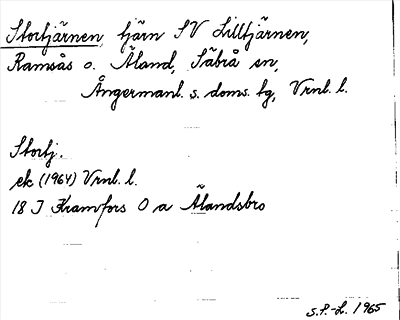 Stortjärnen, tjärn SV Lilltjärnen,
Ramsås o. Äland, Säbrå sn,
Ångermanl. s. doms. tg, Vrnl. l.
Stortj.
ek (1964) Vrnl. l.
18 I Kramfors O a Älandsbro
S.P.-L. 1965